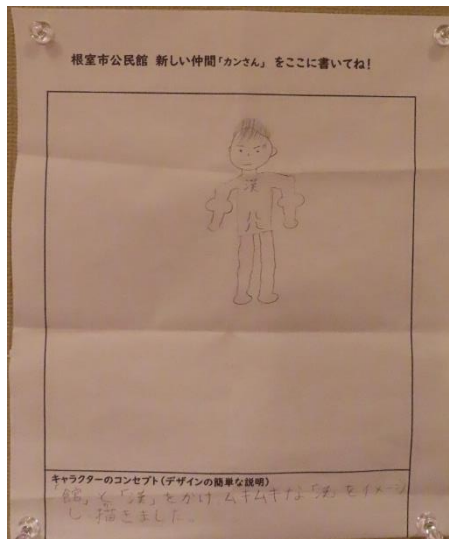 根室市公民館 新しい仲間「カンさん」 をここに書いてね!
漢
キャラクターのコンセプト(デザインの簡単な説明)
「館」と「漢」をかけ、ムキムキな「漢」をイメージ
し、描きました。